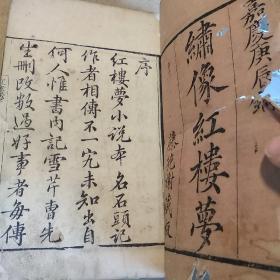 嘉慶庚辰鐫
繡像紅樓夢
藤花榭藏板
序
紅樓夢小說本名石頭記
作者相傳不一究未知出自
何人惟書內記雪芹曹先
生刪改數過好事者每傳